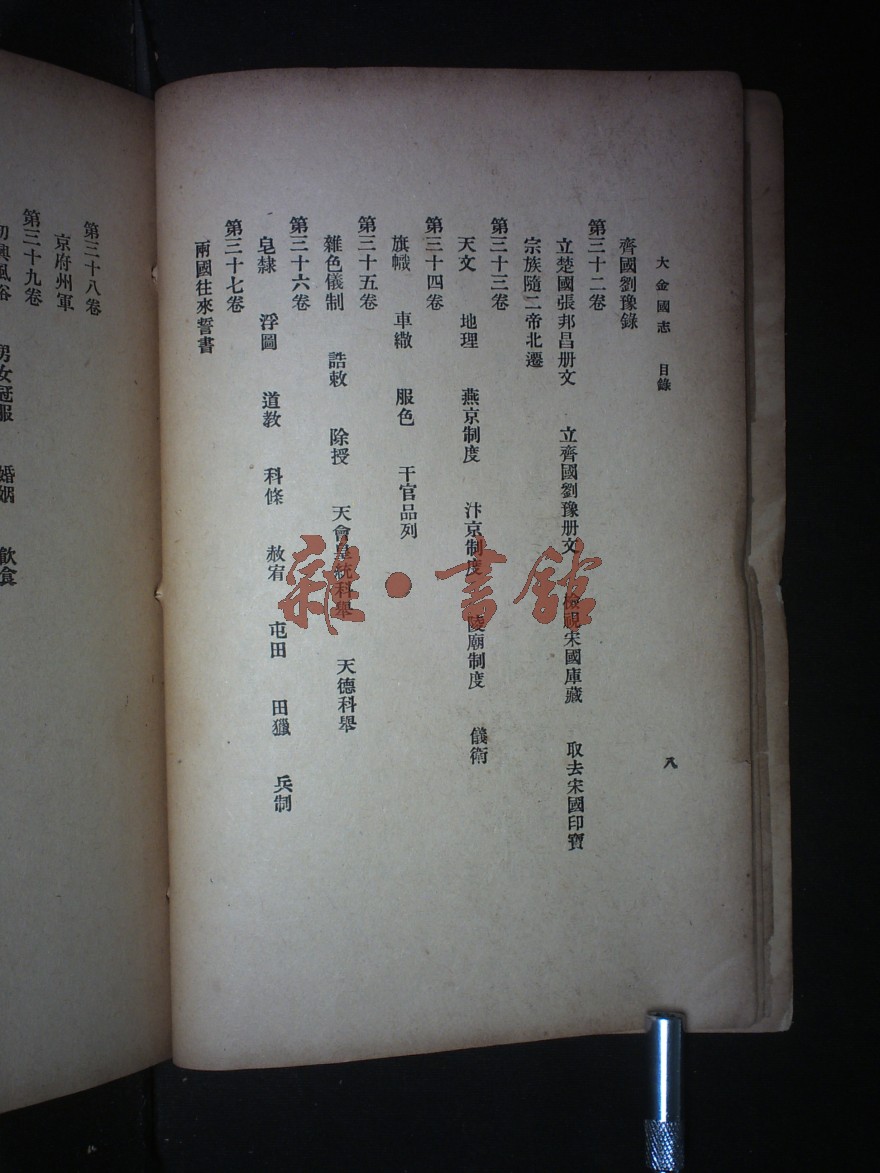 大金國志 目錄 八
齊國劉豫錄
第三十二卷
立楚國張邦昌册文 立齊國劉豫册文 檢視宋國庫藏 取去宋國印寶
宗族隨二帝北遷
第三十三卷
天文 地理 燕京制度 汴京制度 陵廟制度 儀衛
第三十四卷
旗幟 車繖 服色 千官品列
第三十五卷
雜色儀制 誥敕 除授 天會皇統科舉 天德科舉
第三十六卷
皂隸 浮圖 道教 科條 赦宥 屯田 田獵 兵制
第三十七卷
兩國往來誓書
第三十八卷
京府州軍
第三十九卷
初興風俗 男女冠服 婚姻 飮食
雜·書館